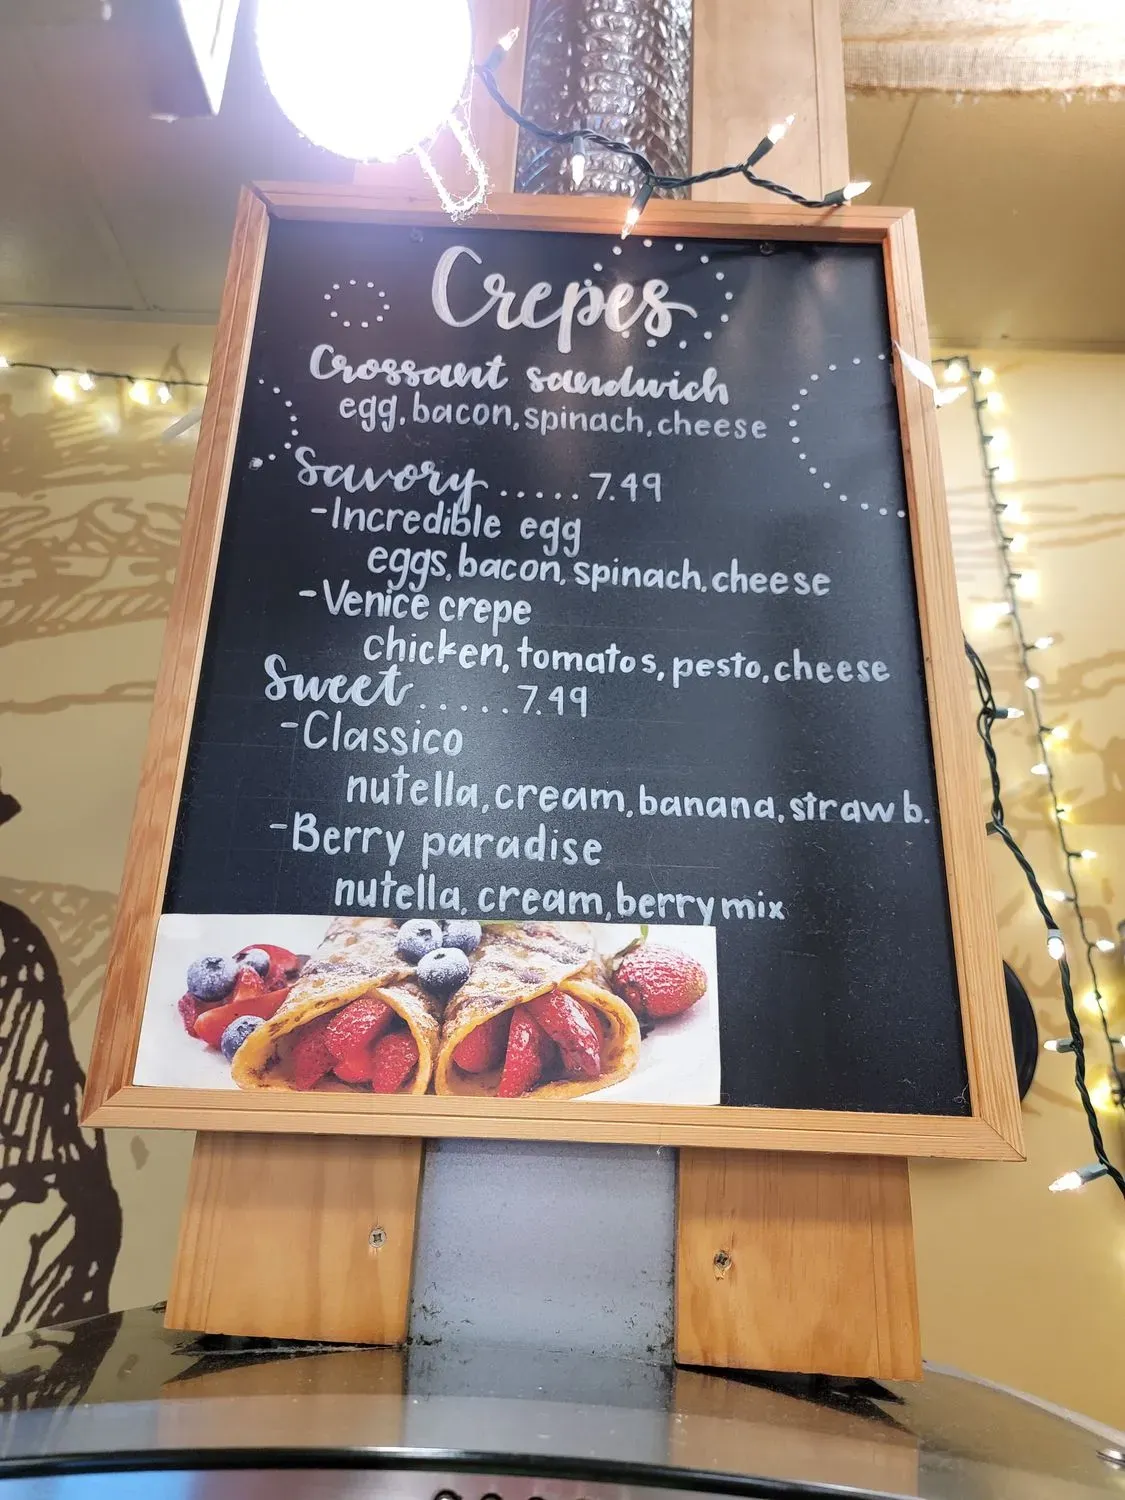 Crepes
Crossant sandwich
egg, bacon, spinach, cheese
Savory.....7.49
-Incredible egg
eggs, bacon, spinach, cheese
-Venice crepe
chicken, tomatos, pesto, cheese
Sweet......7.49
-Classico
nutella, cream, banana, strawb.
-Berry paradise
nutella, cream, berry mix